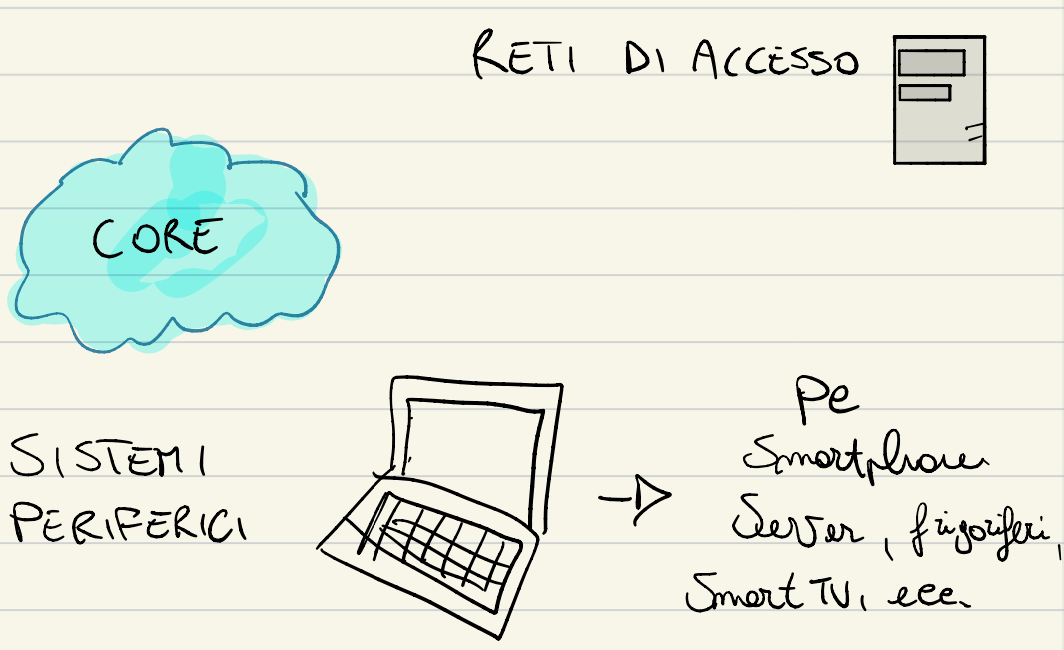 RETI DI ACCESSO
CORE
SISTEMI
PERIFERICI
PC
Smartphone
Server, frigoriferi,
Smart TV, ecc.